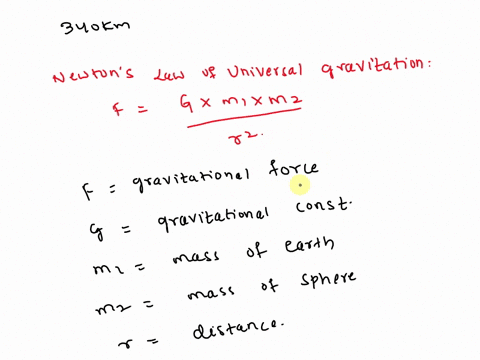 340km
Newton's Law of Universal gravitation:
F = G × m1 × m2
r².
F = gravitational force
G = gravitational const.
m1 = mass of earth
m2 = mass of sphere
r = distance.